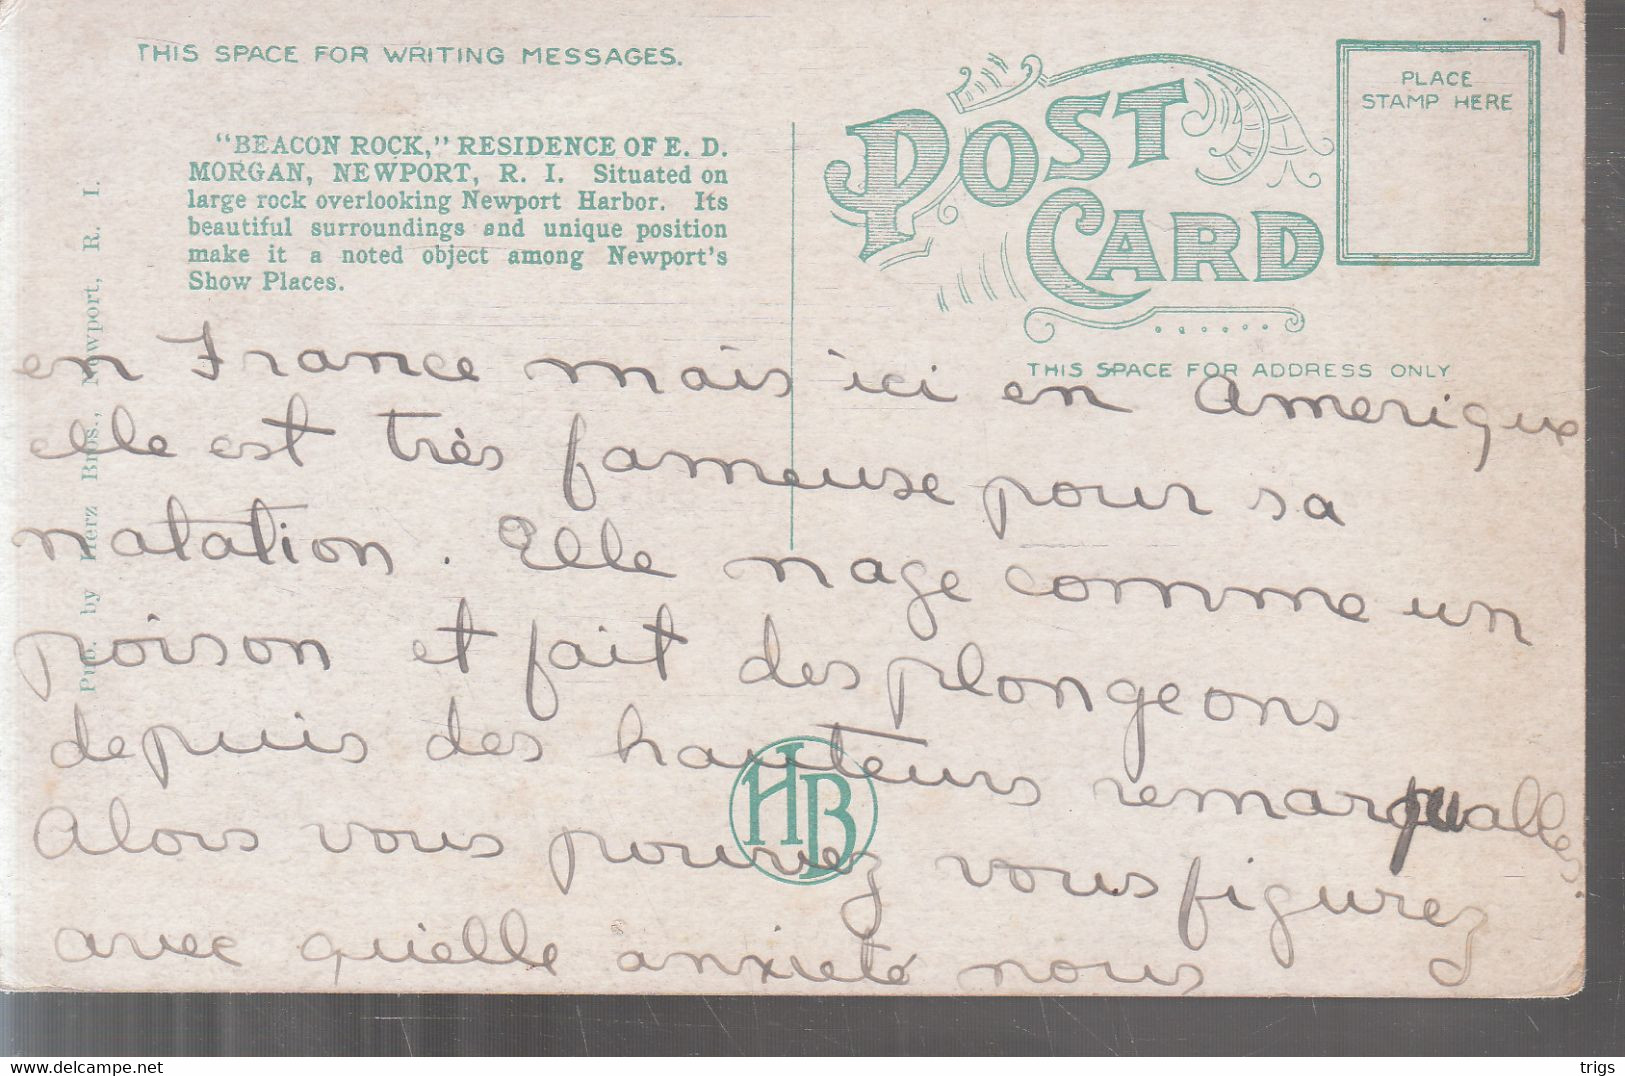 THIS SPACE FOR WRITING MESSAGES.
"BEACON ROCK," RESIDENCE OF E. D.
MORGAN, NEWPORT, R. I. Situated on
large rock overlooking Newport Harbor. Its
beautiful surroundings and unique position
make it a noted object among Newport's
Show Places.
Pub. by Herz Bros., Newport, R. I.
POST CARD
PLACE
STAMP HERE
THIS SPACE FOR ADDRESS ONLY
en France mais ici en Amerique
elle est très fameuse pour sa
natation. Elle nage comme un
poisson et fait des plongeons
depuis des hauteurs remarquables.
Alors vous pouvez vous figurez
avec quielle anxieté nous
HB
www.delcampe.net
trigs